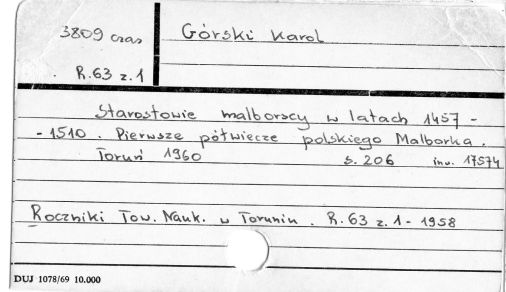 3809 czas
Górski Karol
R.63 z.1
Starostowie malborscy w latach 1457 -
- 1510. Pierwsze półwiecze polskiego Malborka.
Toruń 1960 s. 206 inw. 17574
Roczniki Tow. Nauk. w Toruniu. R. 63 z. 1 - 1958
DUJ 1078/69 10.000